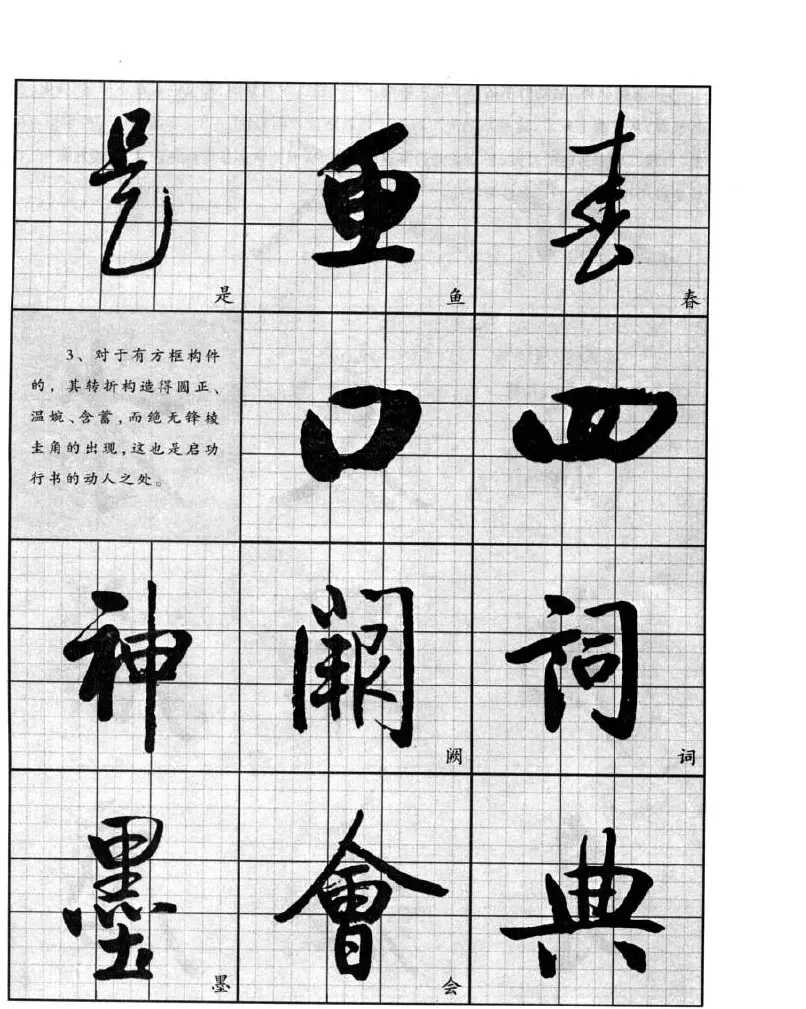 是 鱼 春
是 鱼 春
3、对于有方框构件
的，其转折构造得圆正、
温婉、含蓄，而绝无锋棱
圭角的出现，这也是启功
行书的动人之处。
口 四
神 闕 詞
阙 词
墨 會 典
墨 会